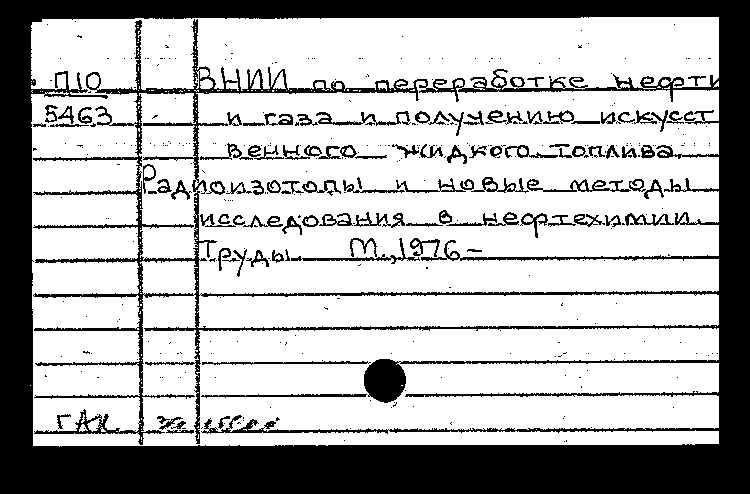 П10 ВНИИ по переработке нефти
5463 и газа и получению искусст
венного жидкого топлива.
Радиоизотопы и новые методы
исследования в нефтехимии.
Труды. М., 1976 –
ГАК